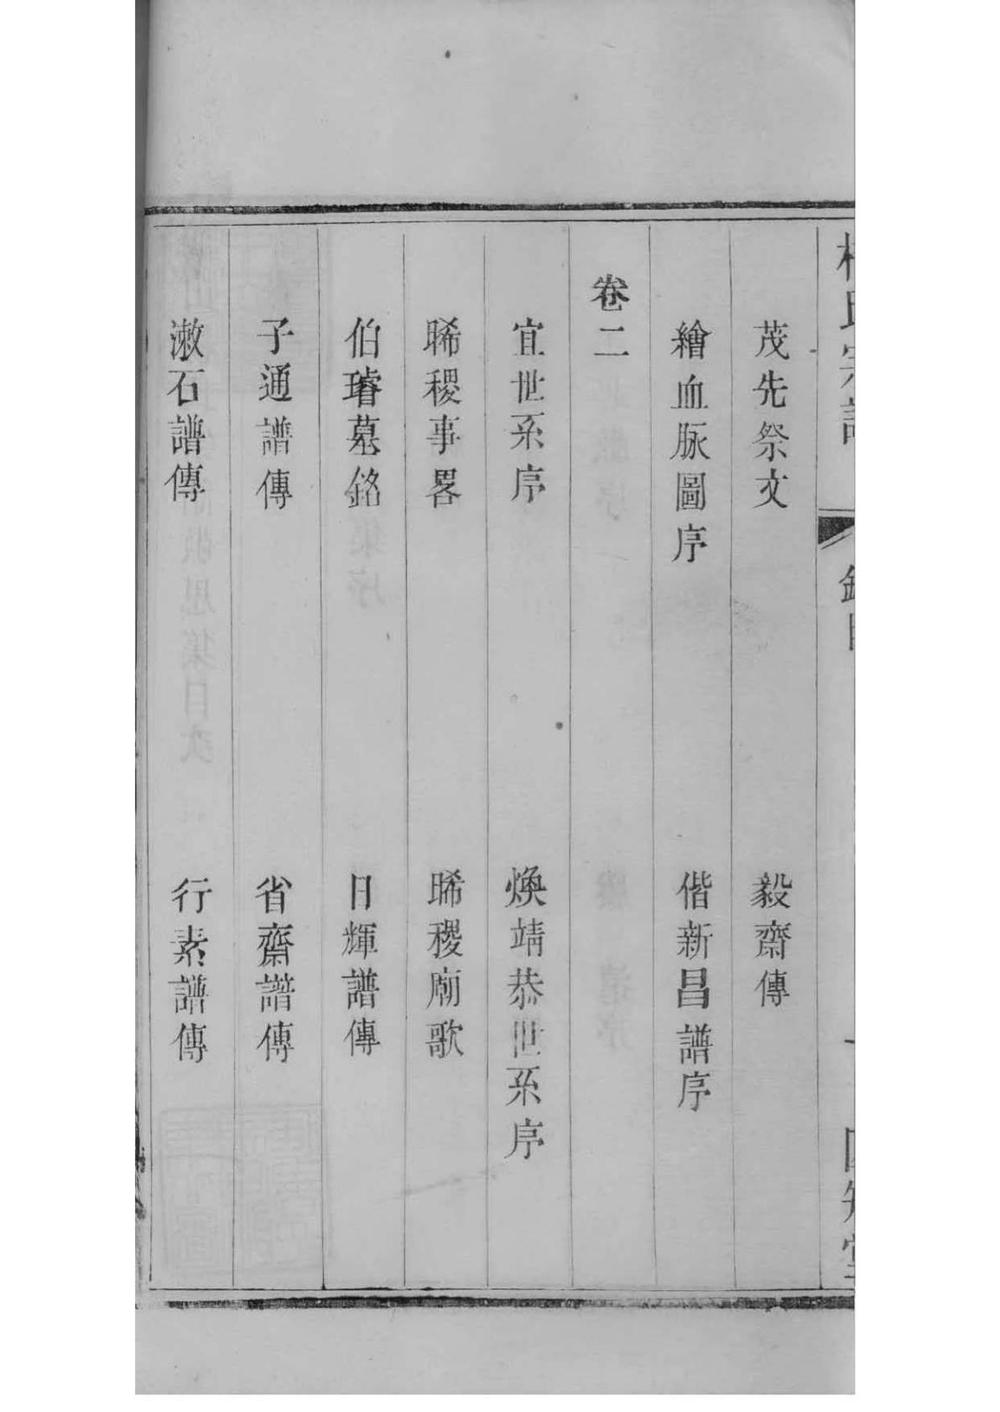 茂先祭文　毅齋傳
繪血脉圖序　偕新昌譜序
卷二
宜世系序　煥靖恭世系序
晞稷事畧　晞稷廟歌
伯璿墓銘　日輝譜傳
子通譜傳　省齋譜傳
漱石譜傳　行素譜傳